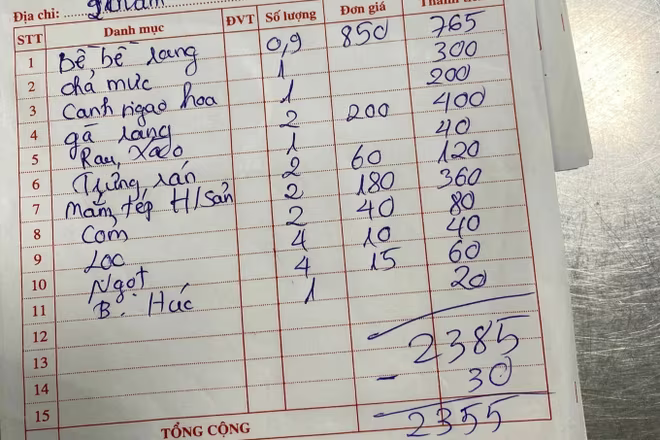 Địa chỉ:
STT Danh mục ĐVT Số lượng Đơn giá
1 Bề bề rang 0,9 850 765
2 chả mực 1 300
3 Canh ngao hoa 1 200
4 gà rang 2 200 400
5 Rau, Xào 1 40
6 Trứng, rán 2 60 120
7 Mắm, tép H/Sản 2 180 360
8 Cơm 2 40 80
9 Lọc 4 10 40
10 Ngọt 4 15 60
11 B. Húc 1 20
12 2385
13
14 - 30
15
TỔNG CỘNG 2355